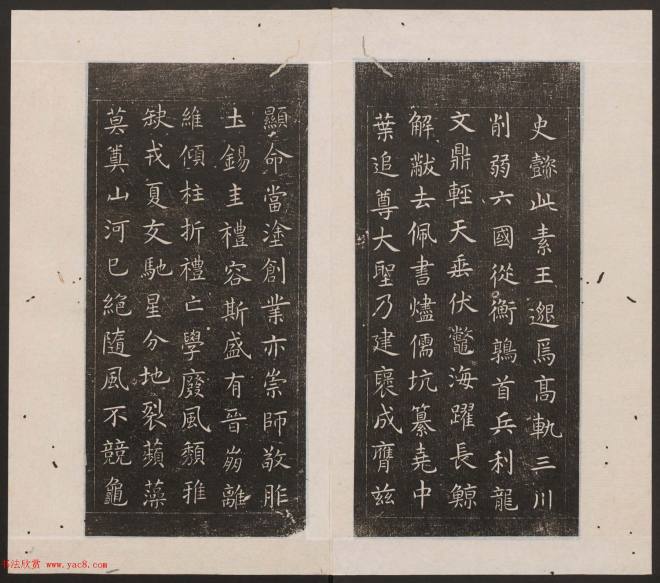 史懿此素王邈焉高軌三川
削弱六國從衡鶉首兵利龍
文鼎輕天垂伏鼈海躍長鯨
解黻去佩書燼儒坑纂堯中
葉追尊大聖乃建褒成膺兹
顯命當塗創業亦崇師敬胙
土錫圭禮容斯盛有晉崩離
維傾柱折禮亡學廢風頹雅
缺戎夏交馳星分地裂蘋藻
莫奠山河已絕隨風不競龜
书法欣赏 www.yac8.com